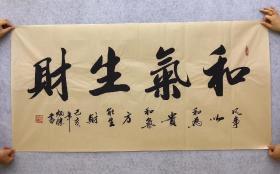 和氣生財
凡事
以
和為
貴
和氣
方
能生
財
己亥
年
書